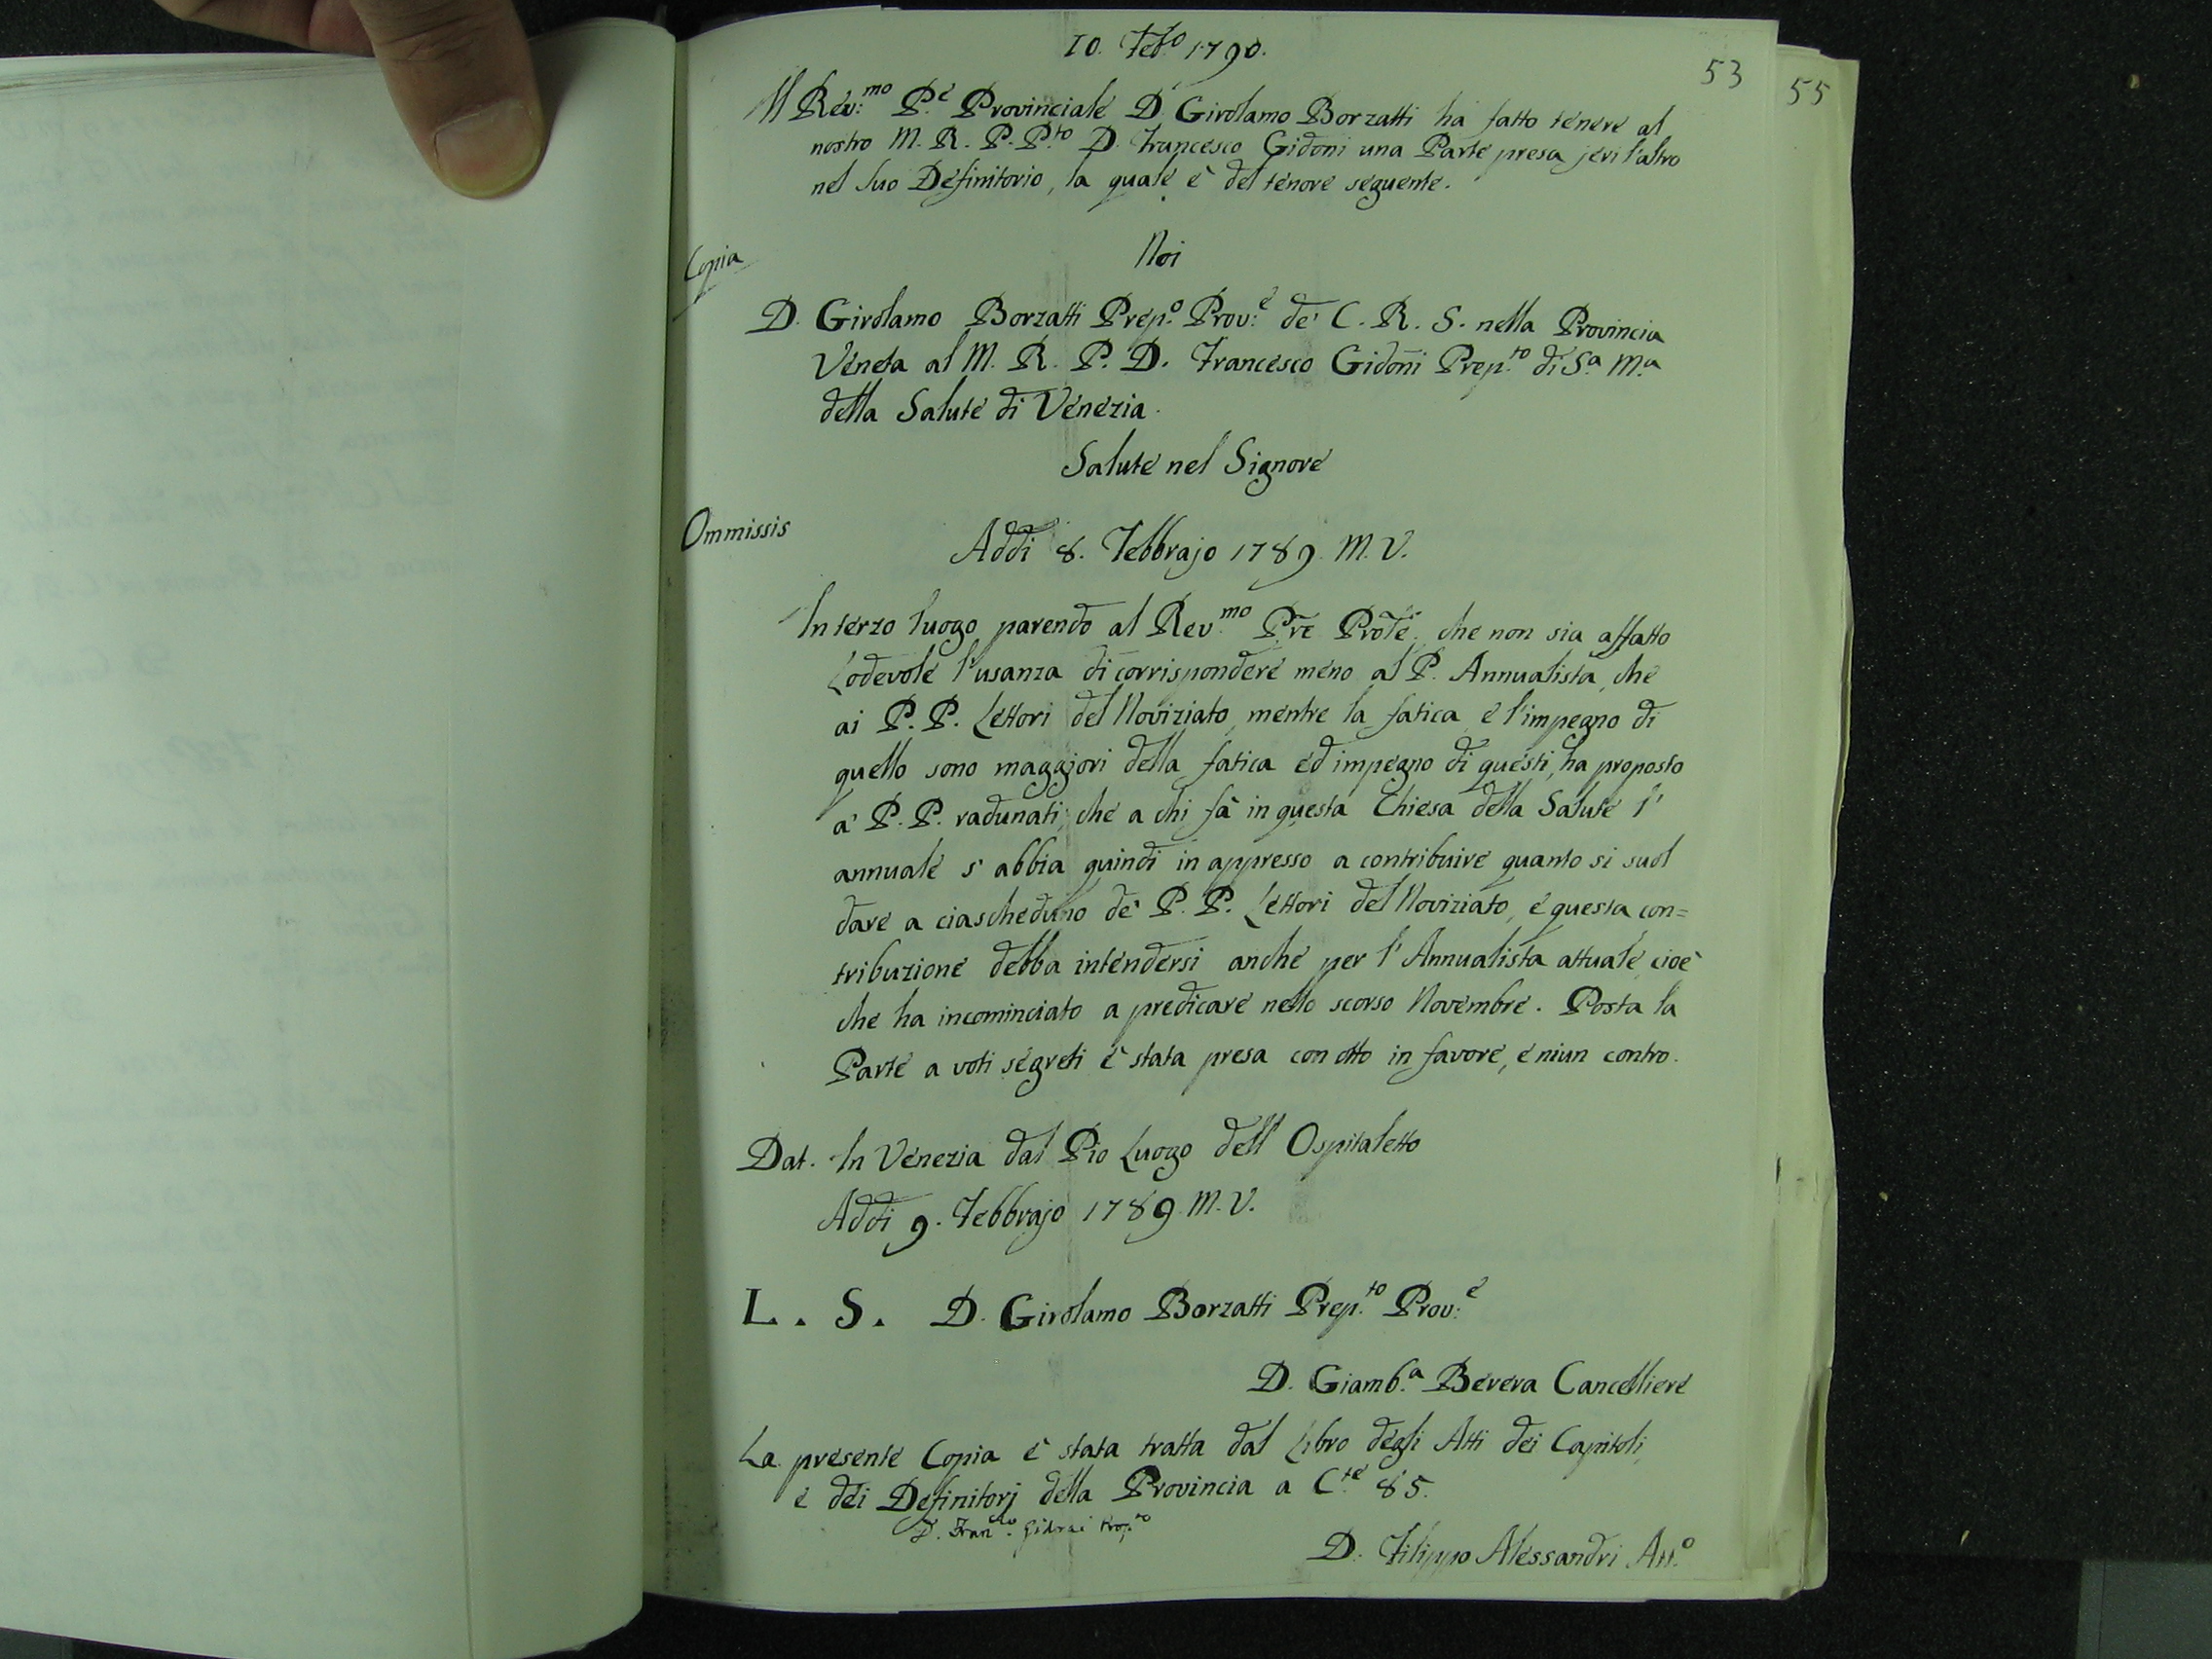 10. Feb.o 1790.
53
55
Il Rev:mo P.e Provinciale D. Girolamo Borzatti ha fatto tenere al
nostro M. R. P. P.to D. Francesco Gidoni una Parte presa jeri l'altro
nel suo Definitorio, la quale è del tenore seguente.
Copia
Noi
D. Girolamo Borzatti Prep.o Prov:e de' C. R. S. nella Provincia
Veneta al M. R. P. D. Francesco Gidoni Prep.to di S.a M.a
della Salute di Venezia.
Salute nel Signore
Ommissis
Addi 8. Febbrajo 1789. M. V.
In terzo luogo parendo al Rev.mo Pre Prole, che non sia affatto
Lodevole l'usanza di corrispondere meno al P. Annualista, che
ai P. P. Lettori del Noviziato, mentre la fatica e l'impegno di
quello sono maggiori della fatica ed impegno di questi, ha proposto
a' P. P. radunati, che a chi fà in questa Chiesa della Salute l'
annuale s'abbia quindi in appresso a contribuire quanto si suol
dare a ciascheduno de' P. P. Lettori del Noviziato, e questa con=
tribuzione debba intendersi anche per l'Annualista attuale, cioè
che ha incominciato a predicare nello scorso Novembre. Posta la
Parte a voti segreti è stata presa con otto in favore, e niun contro.
Dat. In Venezia dal Pio Luogo dell'Ospitaletto
Addi 9. Febbrajo 1789. M. V.
L. S. D. Girolamo Borzatti Prep.to Prov:e
D. Giamb.a Bevera Cancelliere
La presente Copia è stata tratta dal Libro degli Atti dei Capitoli,
e dei Definitorj della Provincia a C.te 85.
D. Fran.co Gidoni Prep.to
D. Filippo Alessandri Att.o